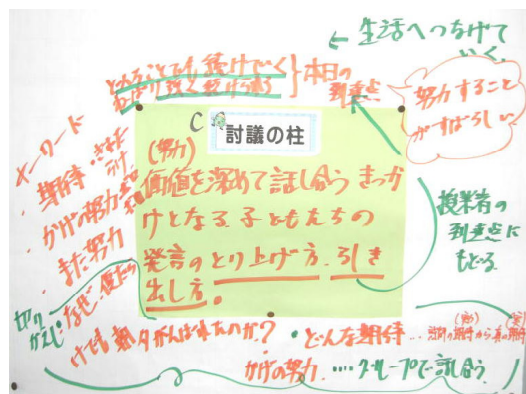 ← 生活へつなげて
いく
どんなことでも続けていく
ねばり強く続けられる
}本日の
到達点
努力すること
がすばらしい
C
討議の柱
(努力)
価値を深めて話し合うきっか
けとなる子どもたちの
発言のとり上げ方、引き
出し方。
キーワード
・期待
・かげの努力
・また努力
授業者の
到達点に
もどる
切り
かえし
なぜ、僕たち
けでも 朝夕がんばれたのか?
・どんな期待…
かげの努力 ‥‥グループで話し合う